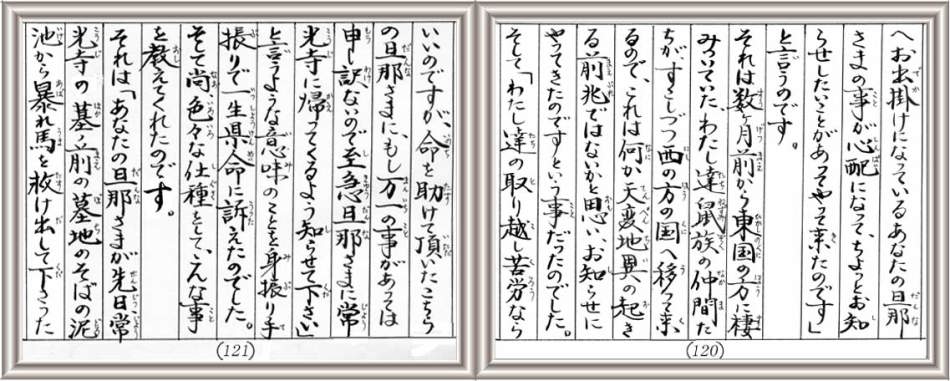 へお出掛けになっているあなたの旦那
さまの事が心配になって、ちょっとお知
らせしたいことがあってやって来たのです」
と言うのです。
それは数ヶ月前から東国の方に棲
みついていた、わたし達鼠族の仲間た
ちが、すこしづつ西の方の国へ移って来
るので、これは何か天変地異の起き
る前兆ではないかと思い、お知らせに
やってきたのですという事だったのでした。
そして「わたし達の取り越し苦労なら
(120)
いいのですが、命を助けて頂いたこちら
の旦那さまに、もし万一の事があっては
申し訳ないので至急旦那さまに常
光寺に帰ってくるよう知らせて下さい」
と言うような意味のことを身振り手
振りで一生県命に訴えたのでした。
そして尚色々な仕種をして、こんな事
を教えてくれたのです。
それは「あなたの旦那さまが先日常
光寺の墓前の墓地のそばの泥
池から暴れ馬を救け出して下さった
(121)